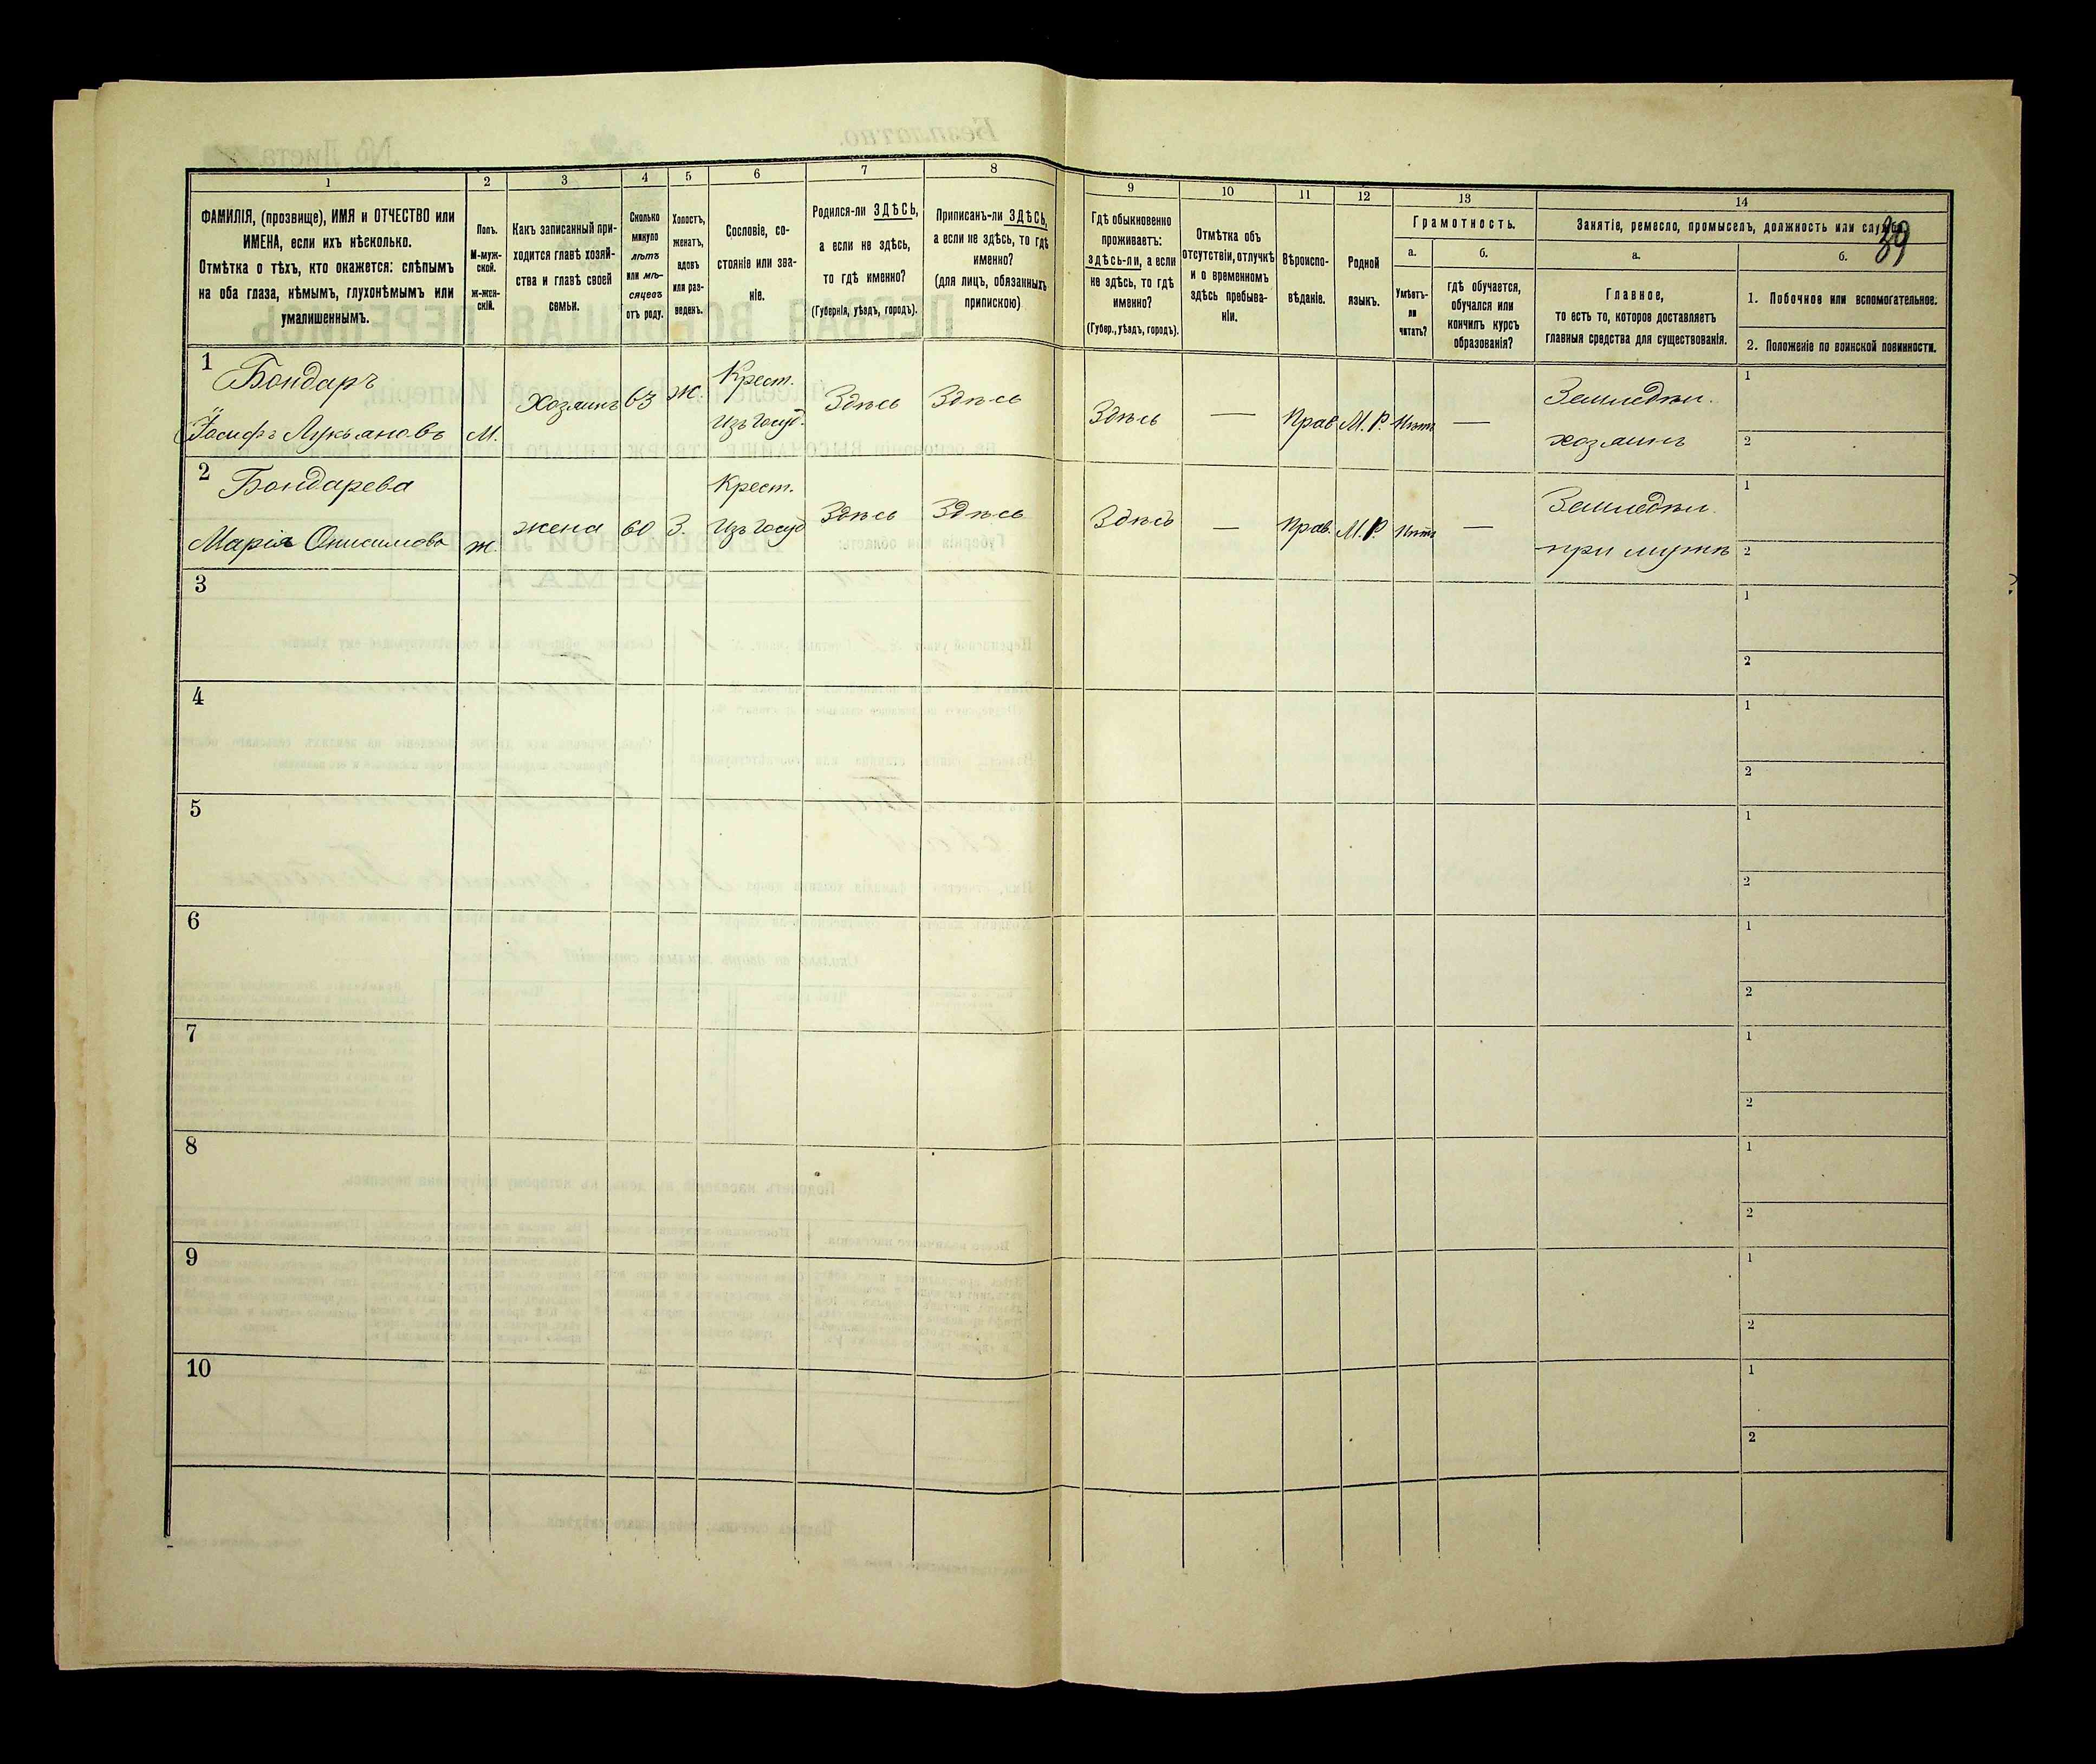 39
1 2 3 4 5 6 7 8 9 10 11 12 13 14
ФАМИЛІЯ, (прозвище), ИМЯ и ОТЧЕСТВО или
ИМЕНА, если ихъ нѣсколько.
Отмѣтка о тѣхъ, кто окажется: слѣпымъ
на оба глаза, нѣмымъ, глухонѣмымъ или
умалишеннымъ.
Полъ.
М-муж-
ской.
ж-жен-
скій.
Какъ записанный при-
ходится главѣ хозяй-
ства и главѣ своей
семьи.
Сколько
минуло
лѣтъ
или мѣ-
сяцевъ
отъ роду.
Холостъ,
женатъ,
вдовъ
или раз-
веденъ.
Сословіе, со-
стояніе или зва-
ніе.
Родился-ли ЗДѢСЬ,
а если не здѣсь,
то гдѣ именно?
(Губернія, уѣздъ, городъ).
Приписанъ-ли ЗДѢСЬ,
а если не здѣсь, то гдѣ
именно?
(для лицъ, обязанныхъ
припискою)
Гдѣ обыкновенно
проживаетъ:
здѣсь-ли, а если
не здѣсь, то гдѣ
именно?
(Губер., уѣздъ, городъ).
Отмѣтка объ
отсутствіи, отлучкѣ
и о временномъ
здѣсь пребыва-
ніи.
Вѣроиспо-
вѣданіе.
Родной
языкъ.
Грамотность.
а.
Умѣетъ-
ли
читать?
б.
гдѣ обучается,
обучался или
кончилъ курсъ
образованія?
Занятіе, ремесло, промыселъ, должность или служба.
а.
Главное,
то есть то, которое доставляетъ
главныя средства для существованія.
б.
1. Побочное или вспомогательное.
2. Положеніе по воинской повинности.
1 Бондаръ Крест. Земледѣл. 1
Іосифъ Лукьяновъ М. Хозяинъ 63 Ж. Изъ Госуд. Здѣсь Здѣсь Здѣсь — Прав М. Р. Нѣтъ — хозяинъ 2
2 Бондарева Крест. Земледѣл. 1
Марія Онисимова Ж. жена 60 З. Изъ Госуд Здѣсь Здѣсь Здѣсь — Прав. М. Р. Нѣтъ — при мужѣ 2
3 1
2
4 1
2
5 1
2
6 1
2
7 1
2
8 1
2
9 1
2
10 1
2